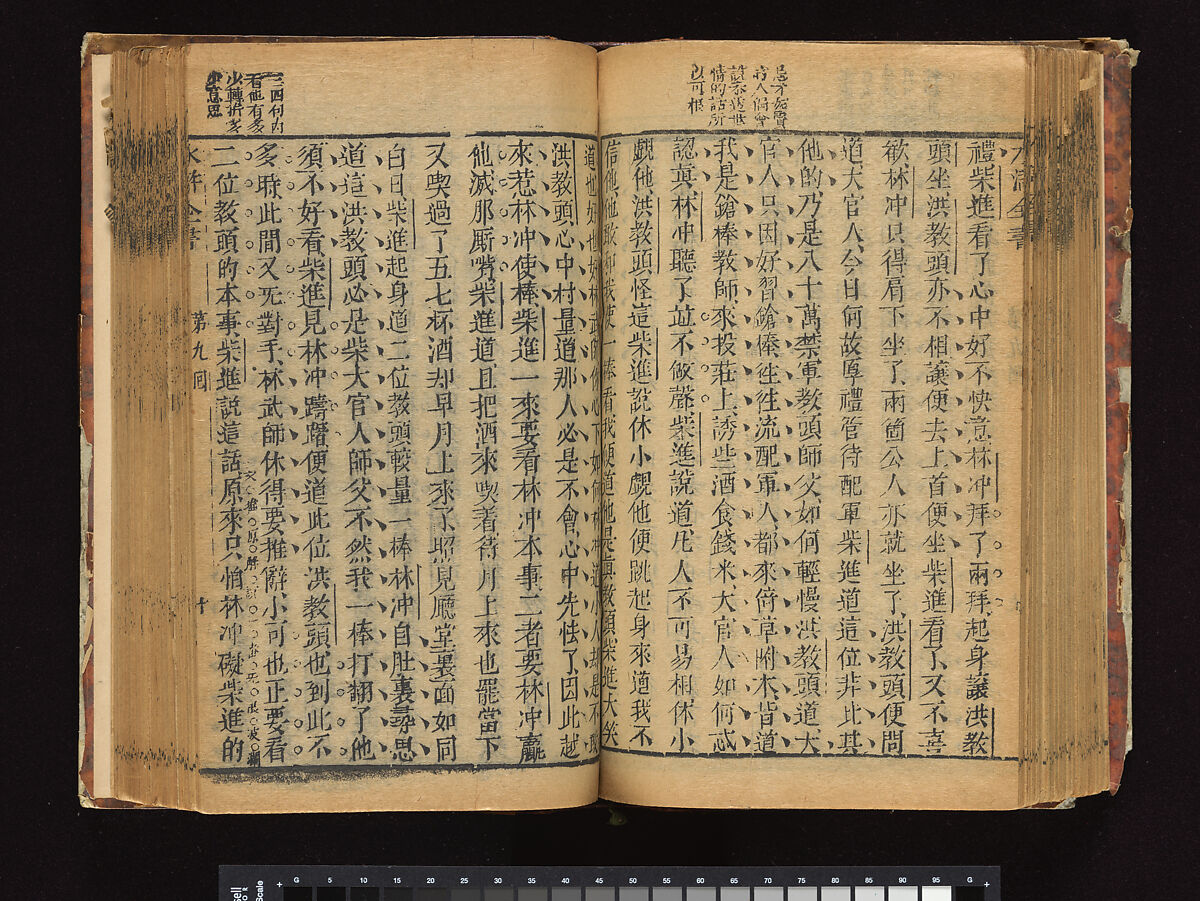 情的話所
以可恨
水滸全書
禮柴進看了心中好不快意林冲拜了兩拜起身讓洪教
頭坐洪教頭亦不相讓便去上首便坐柴進看了又不喜
歡林冲只得肩下坐了兩箇公人亦就坐了洪教頭便問
道大官人今日何故厚禮管待配軍柴進道這位非比其
他的乃是八十萬禁軍教頭師父如何輕慢洪教頭道大
官人只因好習鎗棒徃徃流配軍人都來倚草附木皆道
我是鎗棒教師來投莊上誘些酒食錢米大官人如何忒
認真林冲聽了並不做聲柴進說道凡人不可易相休小
覷他洪教頭怪這柴進說休小覷他便跳起身來道我不
信他他敢和我使一棒看我便道他是真教頭柴進大笑
道也好也好林武師你心下如何林冲道小人却是不敢
洪教頭心中村量道那人必是不會心中先怯了因此越
來惹林冲使棒柴進一來要看林冲本事二者要林冲贏
他滅那厮嘴柴進道且把酒來喫着待月上來也罷當下
又喫過了五七杯酒却早月上來了照見廳堂裏面如同
白日柴進起身道二位教頭較量一棒林冲自肚裏尋思
道這洪教頭必是柴大官人師父不然我一棒打翻了他
須不好看柴進見林冲躊躇便道此位洪教頭也到此不
多時此間又无對手林武師休得要推辭小可也正要看
二位教頭的本事柴進說這話原來只怕林冲礙柴進的
水滸全書
第九回
十
三四行内
看他有多
少轉折多
少意思
G 5 10 15 20 25 30 35 40 45 50 55 60 65 70 75 80 85 90 95 G